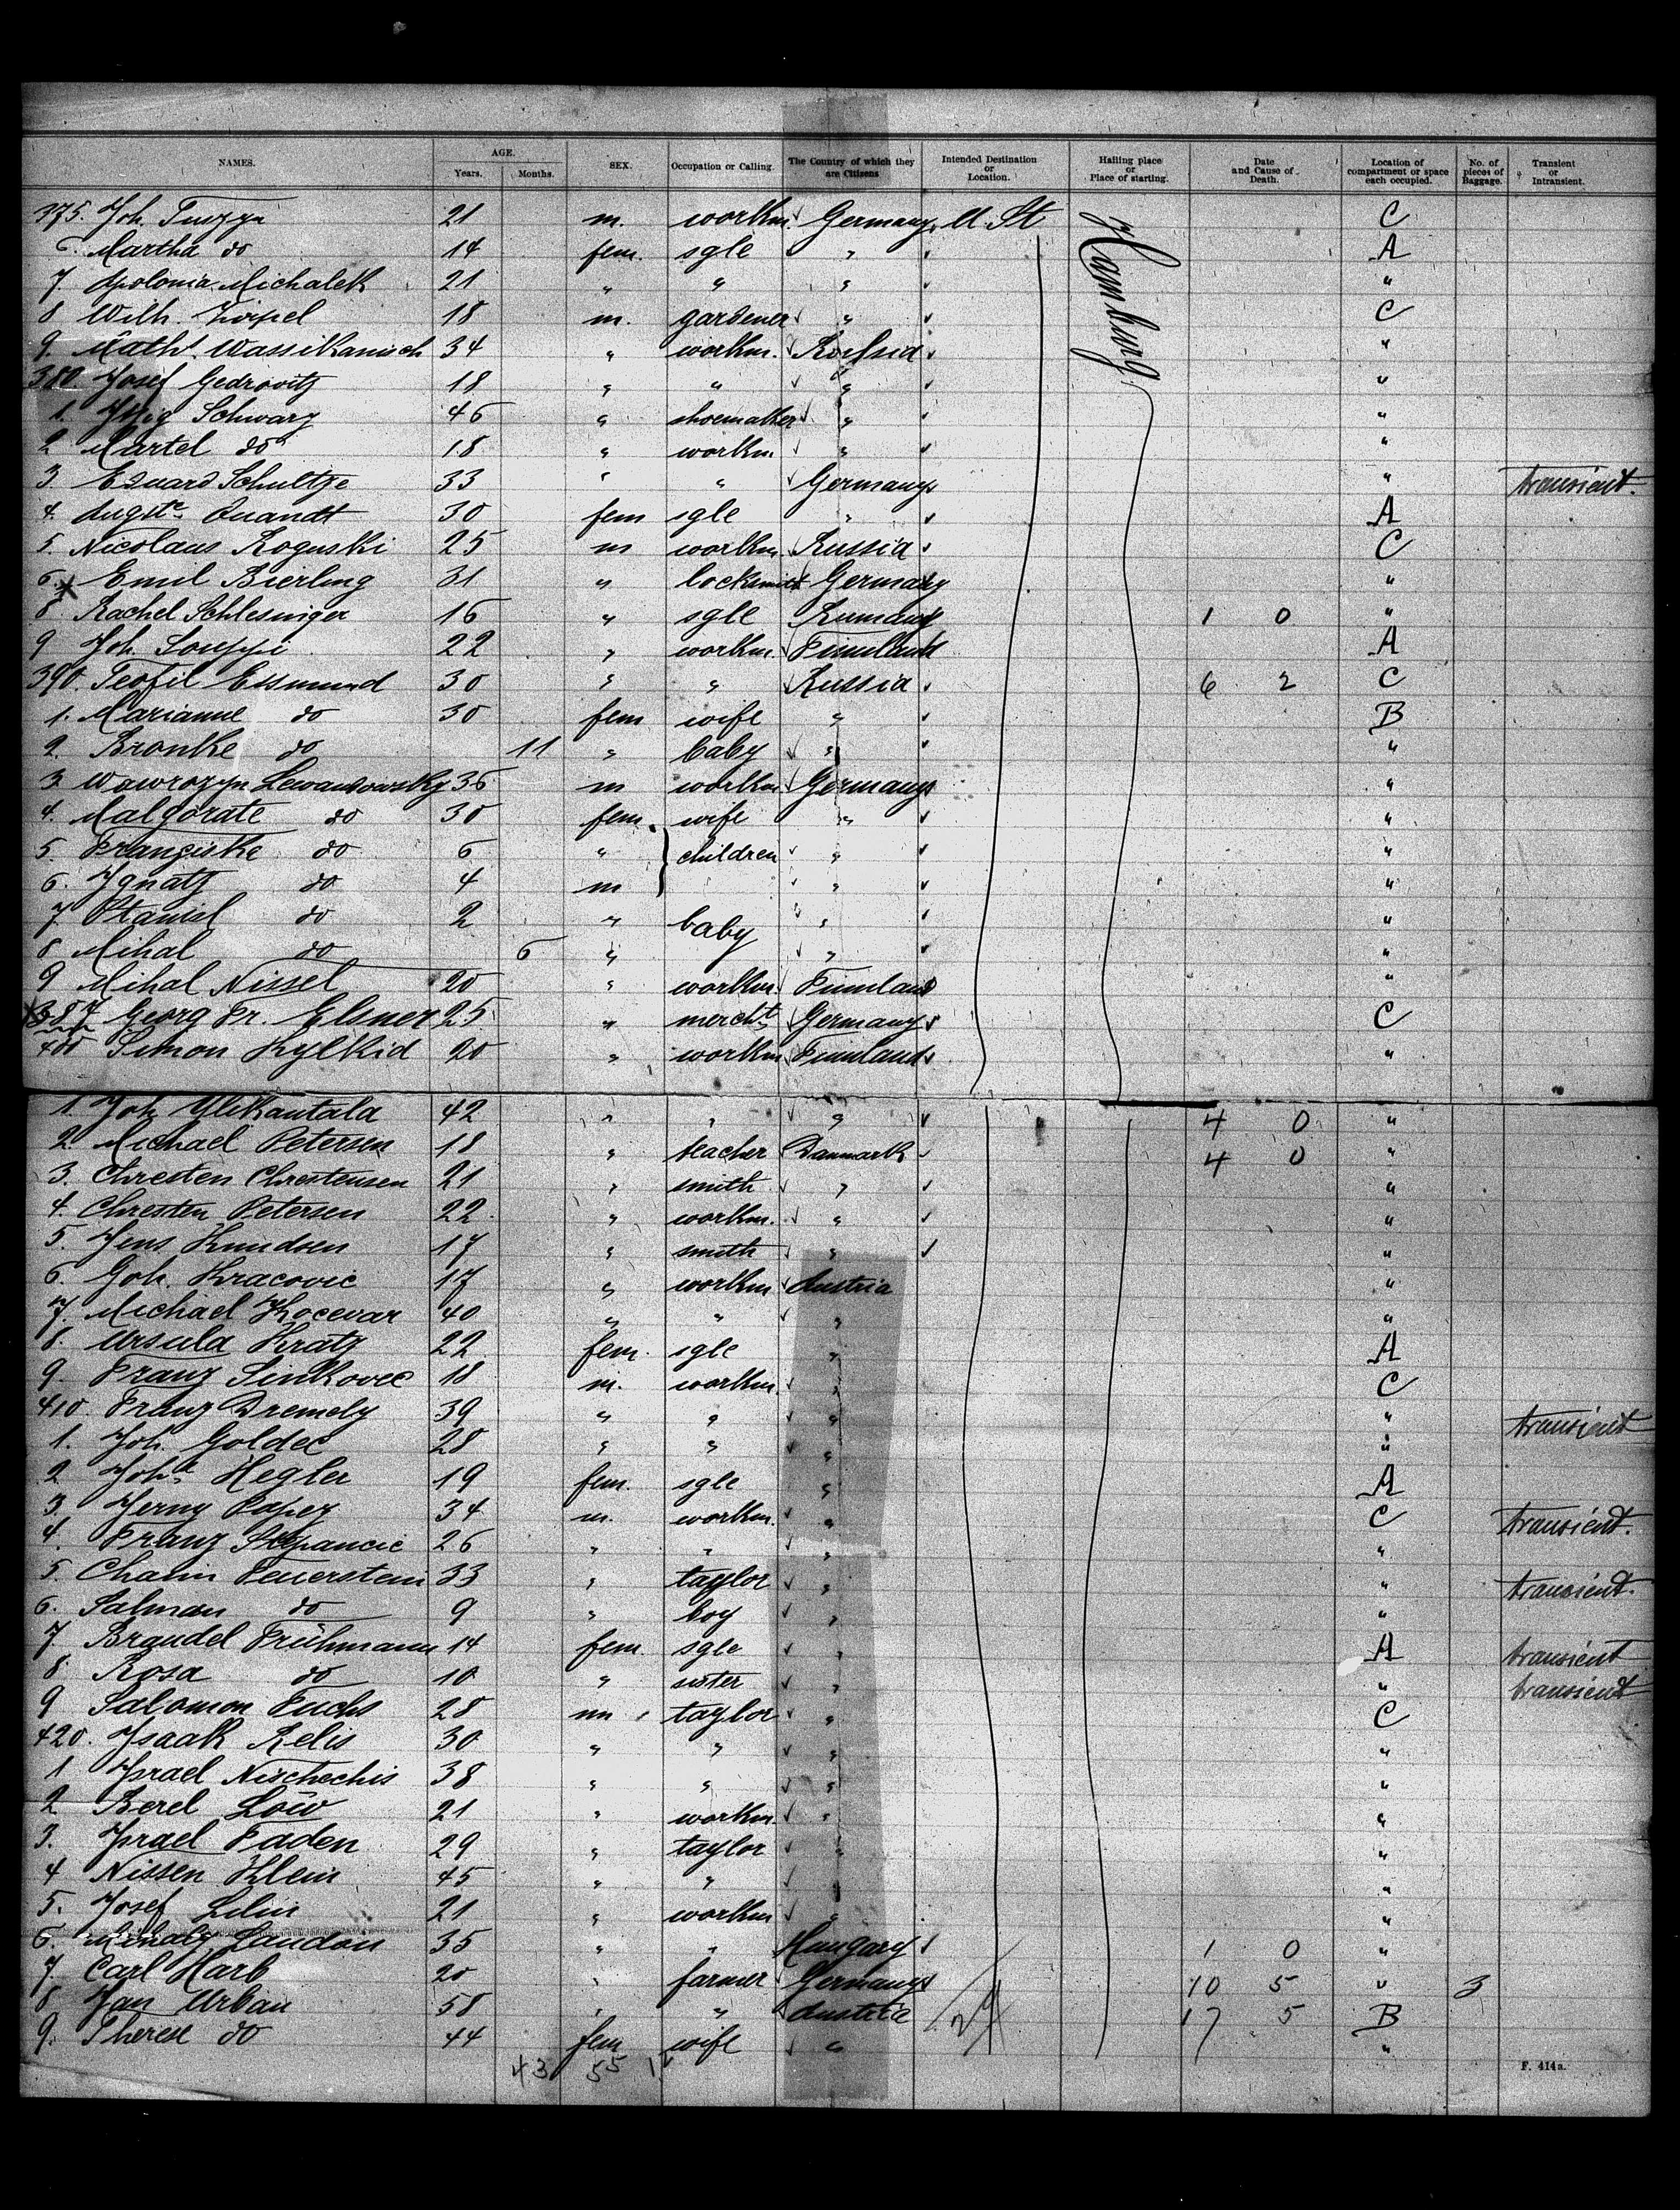 NAMES. AGE. Years. Months. SEX. Occupation or Calling. The Country of which they are Citizens Intended Destination or Location. Hailing place or Place of starting. Date and Cause of Death. Location of compartment or space each occupied. No. of pieces of Baggage. Transient or Intransient.
375. Joh. 21 m. workm. Germany U. St Hamburg C
6. Martha do 14 fem. sgle " A
7 Apolonia Michalek 21 " " " "
8 Wilh. 18 m. gardener " C
9. Math. Wassikanisch 34 " workm. Russia "
380 Josef Gedrovitz 18 " " " "
1. Schwarz 46 " shoemaker " "
2 Martel do 18 " workm " "
3 Eduard Schultze 33 " " Germany " transient.
4. Augste Quandt 30 fem sgle " A
5. Nicolaus Roguski 25 m workm Russia C
6. Emil Bierling 31 " locksmith Germany "
8 Rachel Schlesinger 16 " sgle Rumany 1 0 "
9 Joh. 22 " workm. Finnland A
390. Teofil Eismund 30 " " Russia 6 2 C
1. Marianne do 30 fem wife " B
2. Bronke do 11 " baby " "
3 Wawrozyn Lewandowsky 36 m workm Germany "
4. Malgorate do 30 fem. wife " "
5. Franziske do 6 " children " "
6. Ignatz do 4 m " "
7 Staniel do 2 " baby " "
8 Mihal do 6 " " "
9 Mihal Nissel 20 " workm. Finnland "
387 Georg Fr. Elsner 25 " mercht Germany C
400 Simon Kylkid 20 " workm Finnland "
1. Joh. Ylikantala 42 " " " 4 0 "
2. Michael Petersen 18 " teacher Danmark 4 0 "
3. Chresten Chrestensen 21 " smith " "
4. Chresten Petersen 22 " workm. " "
5. Jens Knudsen 17 " smith " "
6. Joh. Kracovic 17 " workm Austria "
7. Michael Kocevar 40 " " " "
8. Ursula Kratz 22 fem. sgle " A
9. Franz Sinkovec 18 m. workm. " C
410. Franz Dremely 39 " " " " transient
1. Joh. Goldec 28 " " " "
2 Joha Hegler 19 fem. sgle " A
3. Jerny Papez 34 m. workm. " C transient.
4. Franz Stepancic 26 " " " "
5. Chaim Feuerstein 33 " taylor " " transient.
6. Salman do 9 " boy " "
7 Braudel Frühmann 14 fem sgle " A transient
8. Rosa do 10 " sister " " transient
9 Salomon Fuchs 28 m taylor " C
420. Isaak Relis 30 " " " "
1 Israel Nischechis 38 " " " "
2 Berel Löw 21 " workm. " "
3. Israel Faden 29 " taylor " "
4 Nissen Klein 45 " " " "
5. Josef Lilin 21 " workm " "
6. Mihaly Landon 35 " " Hungary 1 0 "
7. Carl Harb 20 " farmer Germany 10 5 " 3
8 Jan Urban 58 " " Austria 17 5 B
9. Therese do 44 fem wife " "
43 55
F. 414a.